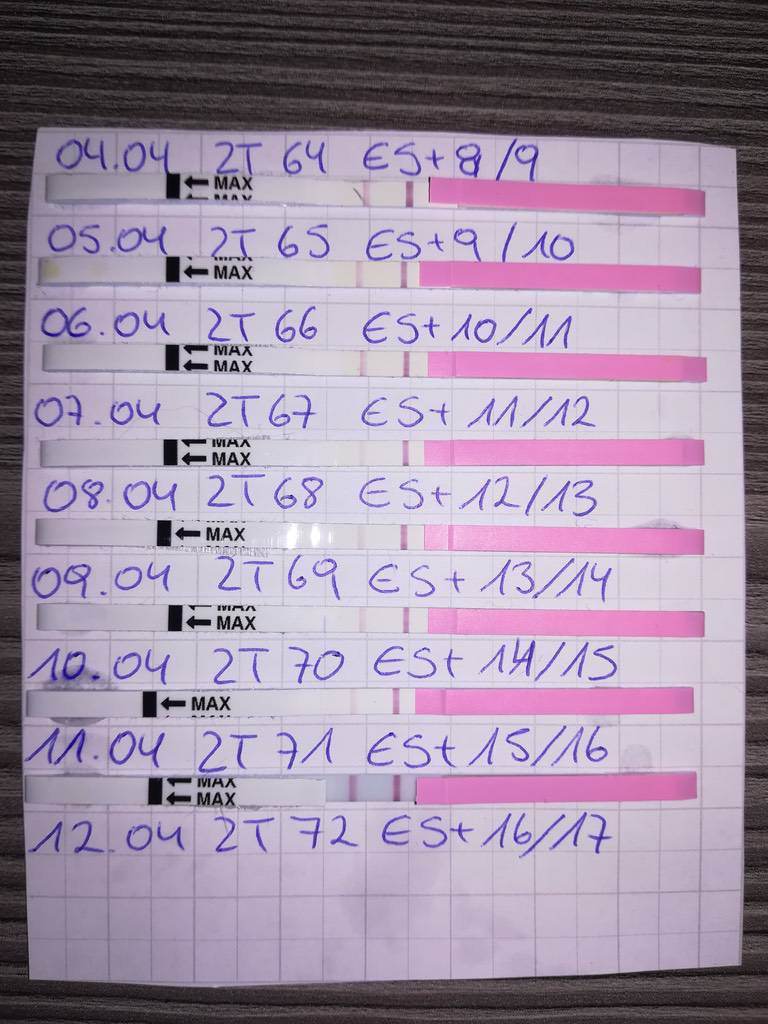 04.04 ZT 64 ES+8/9
← MAX
MAX
05.04 ZT 65 ES+9/10
MAX
← MAX
06.04 ZT 66 ES+10/11
← MAX
← MAX
07.04 ZT 67 ES+11/12
← MAX
← MAX
08.04 ZT 68 ES+12/13
← MAX
09.04 ZT 69 ES+13/14
← MAX
← MAX
10.04 ZT 70 ES+14/15
← MAX
11.04 ZT 71 ES+15/16
← MAX
← MAX
12.04 ZT 72 ES+16/17